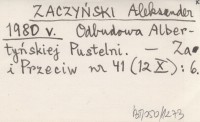 ZACZYŃSKI Aleksander
1980 v. Odbudowa Alber-
tyńskiej Pustelni. — Za
i Przeciw nr 41 (12 X): 6.